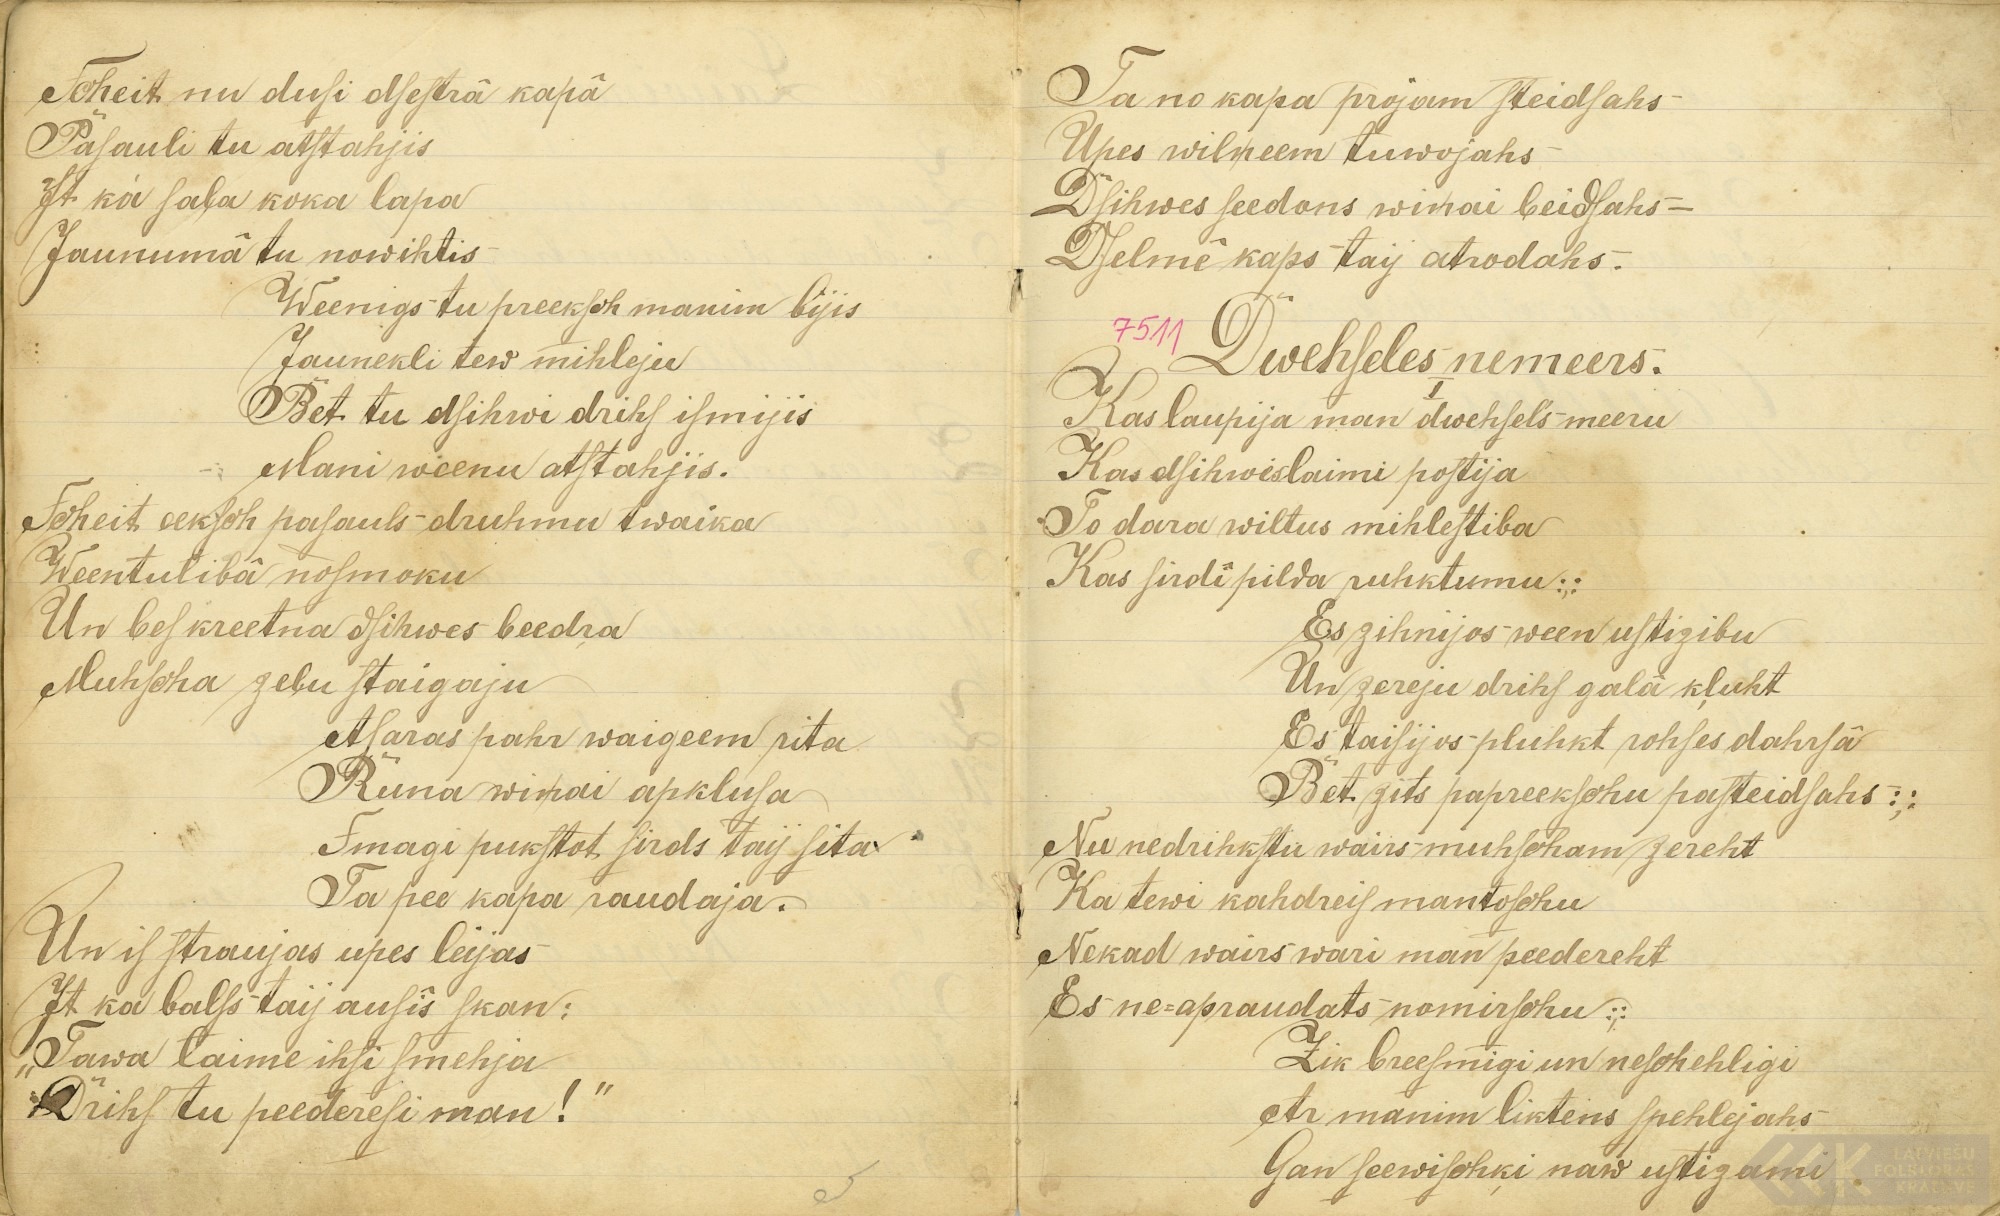 Scheit nu dusi dsestrâ kapâ
Pasauli tu atstahjis
It kà sala koka lapa
Jaunumâ tu nowihtis
Weenigs tu preeksch manim bijis
Jaunekli tew mihleju
Bet tu dsihwi drihs ismijis
Mani weenu atstahjis.
Scheit eeksch pasauls druhmu twaika
Weentulibâ nosmoku
Un bes kreetna dsihwes beedra
Muhscha zelu staigaju
Asaras pahr waigeem rita
Runa wiņai apklusa
Smagi pukstot sirds taij sita
Ta pee kapa raudaja.
Un is straujas upes leijas
It ka balss taij ausîs skan:
„Tawa laime ihsi smehja
Drihs tu peederesi man!"
5
Ta no kapa projam steidsahs
Upes wilņeem tuwojahs
Dsihwes seedons wiņai beidsahs
Dselmê kaps taij atrodahs.
7511
Dwehseles nemeers.
I
Kas laupija man dwehsels meeru
Kas dsihwislaimi postija
To dara wiltus mihlestiba
Kas sirdî pilda ruhktumu :;:
Es zihnijos ween ustizibu
Un zereju drihs galâ kļuht
Es taisijos pluhkt rohses dahrsâ
Bet zits papreekschu pasteidsahs :;:
Nu nedrihkstu wairs muhscham zereht
Ka tewi kahdreis mantoschu
Nekad wairs wari man peedereht
Es ne=apraudats nomirschu :;:
Zik breesmigi un neschehligi
Ar manim liktens spehlejahs
Gan seewischķi naw ustizami
LATVIEŠU
FOLKLORAS
KRĀTUVE